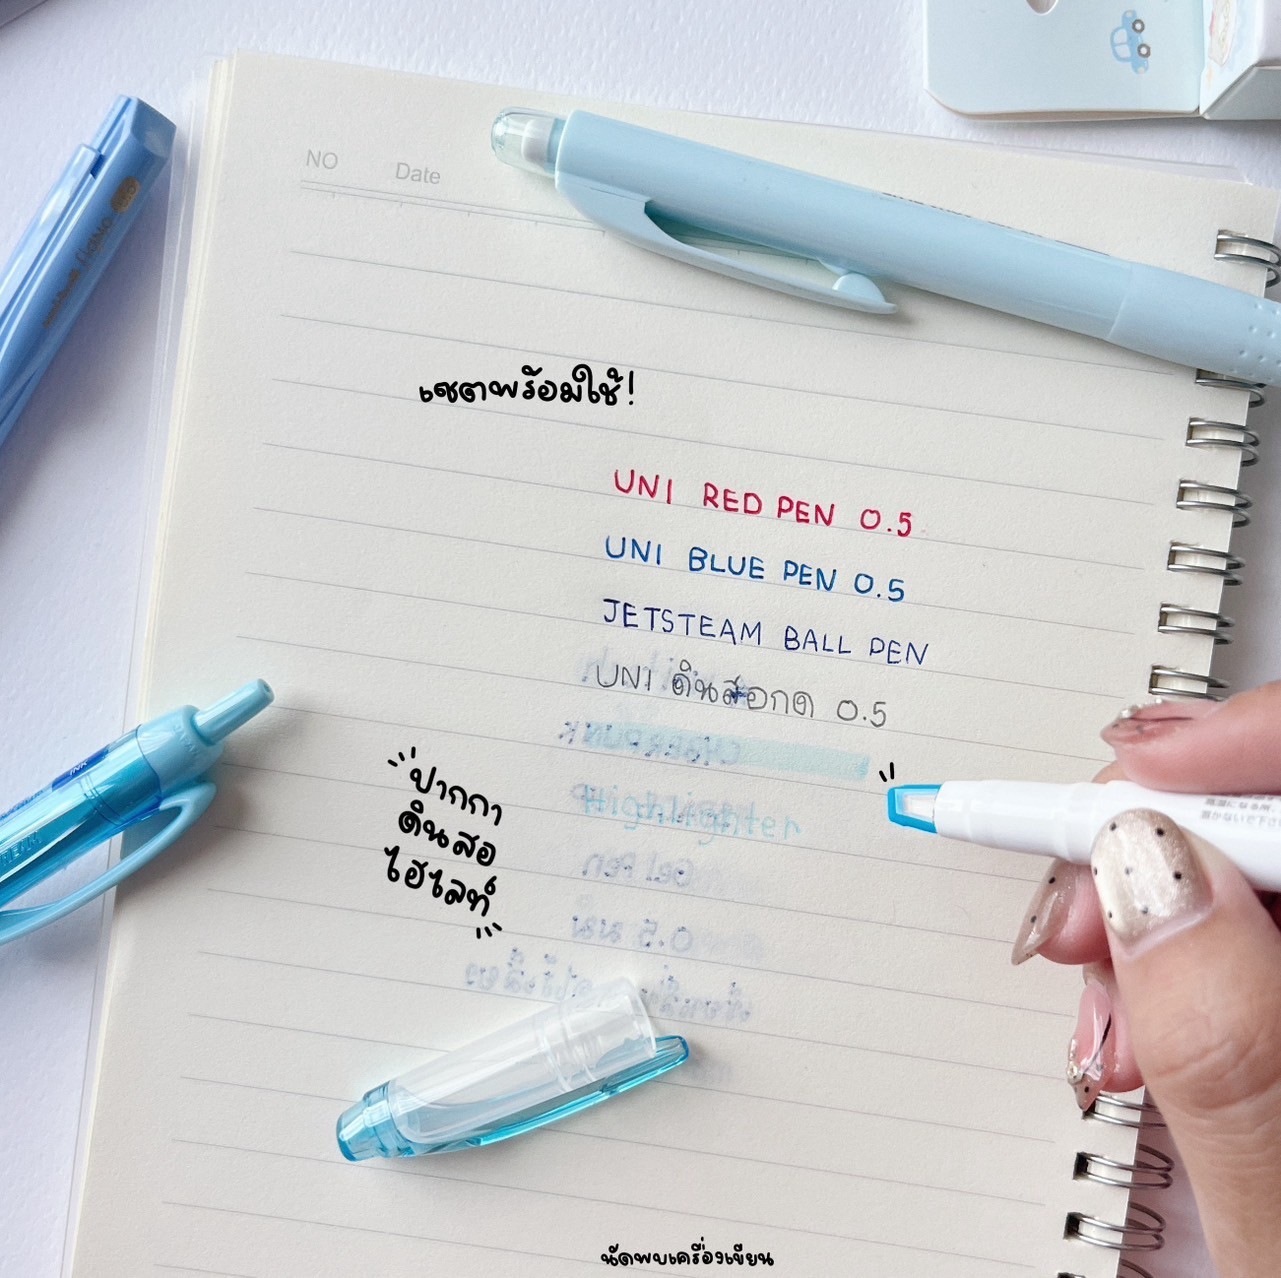 NO Date
เซตพร้อมใช้!
UNI RED PEN 0.5
UNI BLUE PEN 0.5
JETSTEAM BALL PEN
UNI ดินสอกด 0.5
Highlighter
ปากกา
ดินสอ
ไฮไลท์
นัดพบเครื่องเขียน